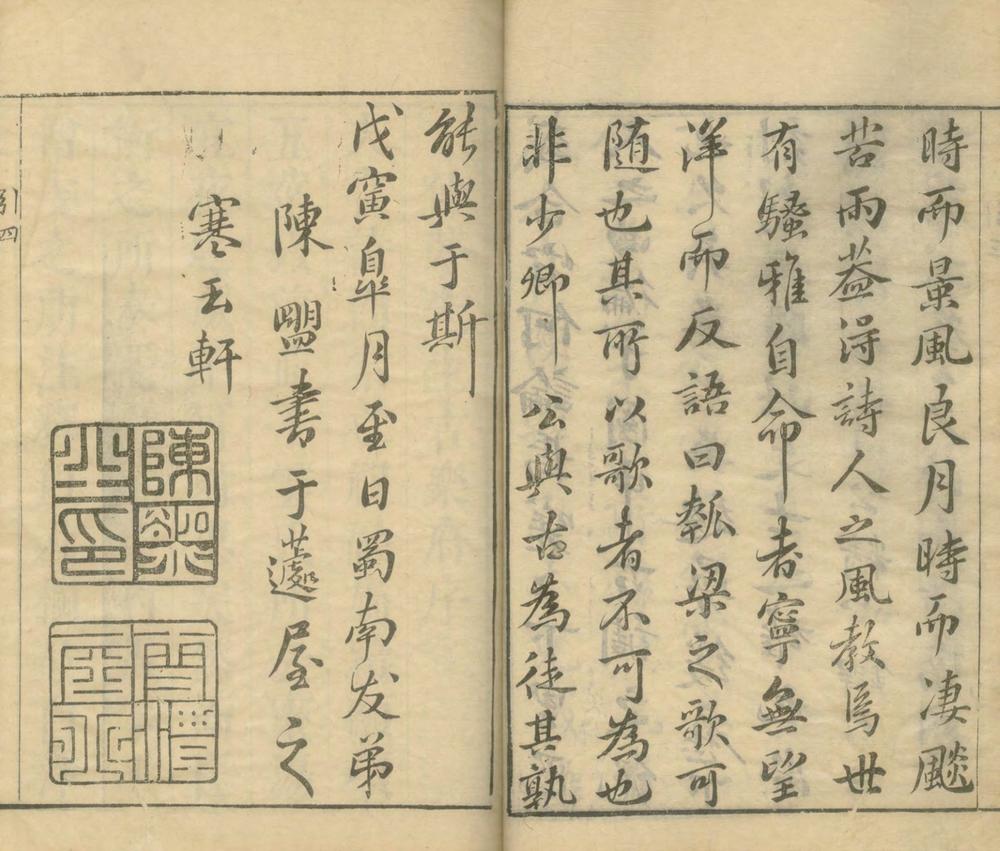 時而景風良月時而凄飈
苦雨葢淂詩人之風教焉世
有騷雅自命者寧無望
洋而反語曰瓠梁之歌可
随也其所以歌者不可為也
非少卿公與古為徒其孰
能與于斯
戊寅臯月至日蜀南友弟
陳盟書于蘧屋之
寒玉軒
陳盟之印
引四